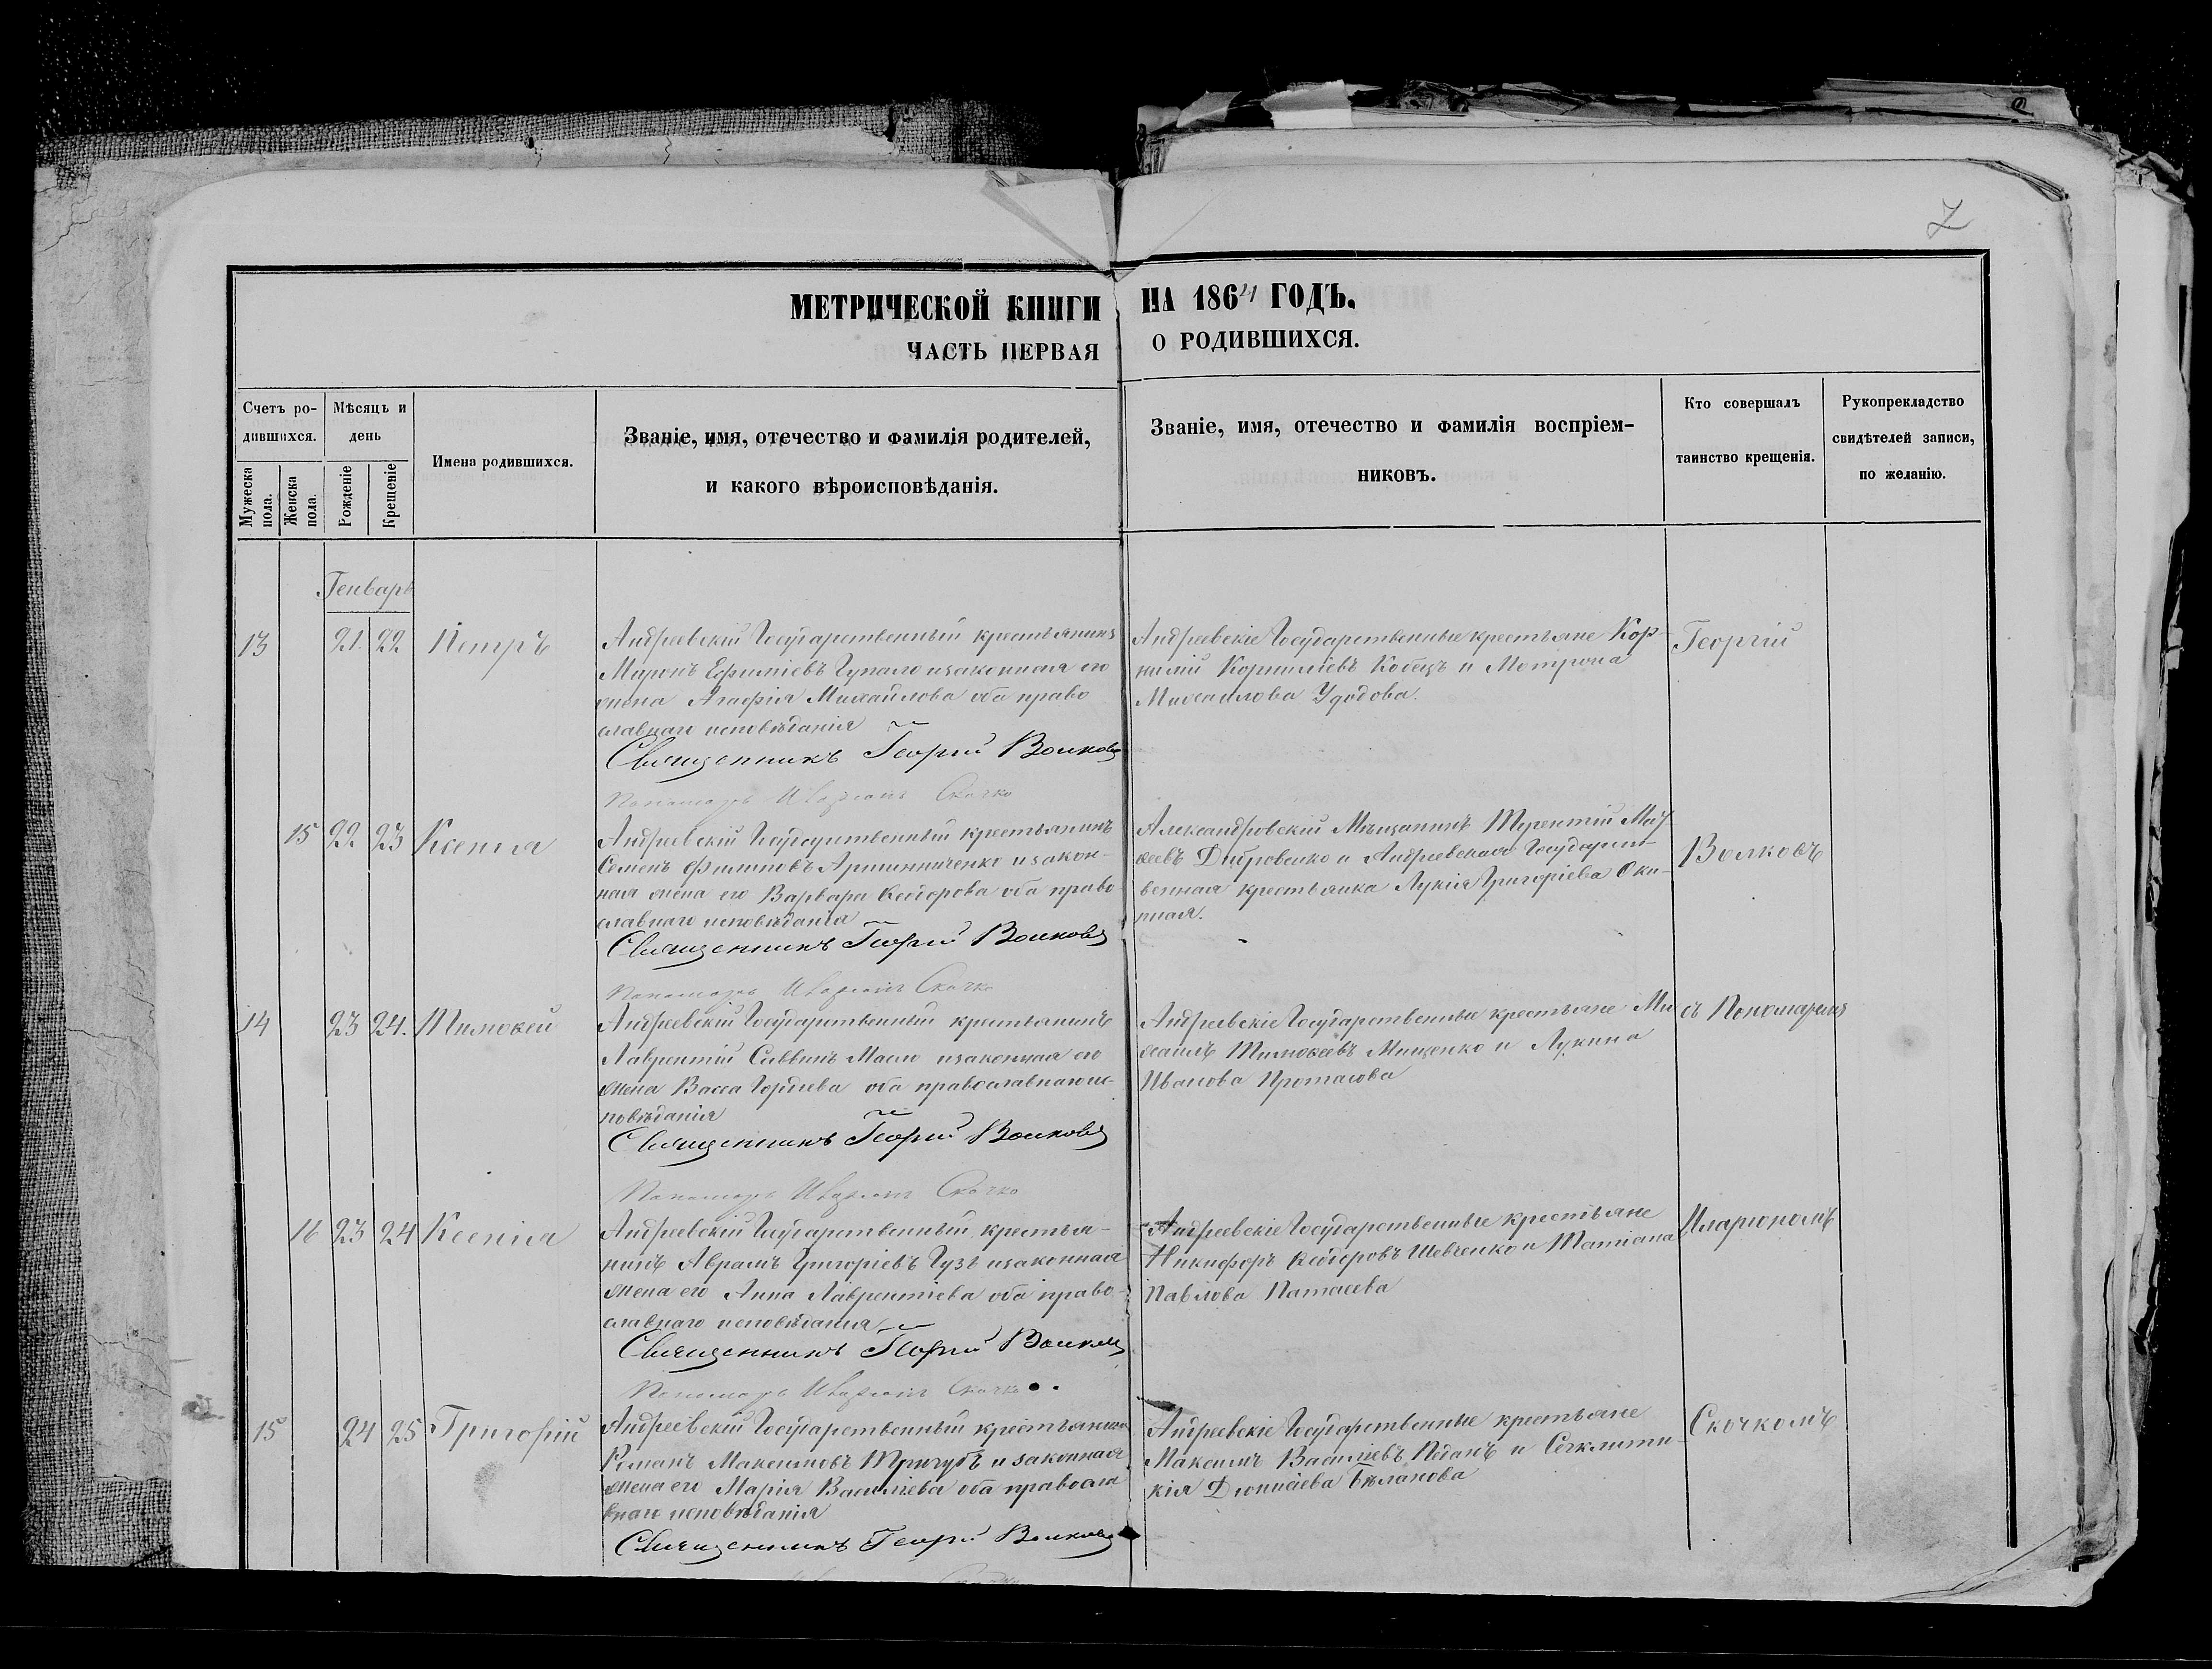 7
МЕТРИЧЕСКОЙ КНИГИ НА 1864 ГОДЪ.
ЧАСТЬ ПЕРВАЯ О РОДИВШИХСЯ.
Счетъ ро-
дившихся.
Мужеска
пола.
Женска
пола.
Мѣсяцъ и
день
Рожденіе
Крещеніе
Имена родившихся.
Званіе, имя, отечество и фамилія родителей,
и какого вѣроисповѣданія.
Званіе, имя, отечество и фамилія воспріем-
никовъ.
Кто совершалъ
таинство крещенія.
Рукоприкладство
свидѣтелей записи,
по желанію.
Генварь
13 21. 22 Петръ
Андреевскій Государственный крестьянинъ
Миронъ Ефиміевъ Гупало изаконная его
жена Агафія Михайлова оба право
славнаго исповѣданія
Священникъ Георгій Волковъ
Пономарь Иларіонъ Скочко
Андреевскіе Государственные крестьяне Кор-
нилій Корниліевъ Кобецъ и Мотрона
Михаилова Удодова.
Георгій
15 22 23 Ксенія
Андреевскій Государственный крестьянинъ
Семенъ Филиповъ и закон-
ная жена его Варвара Ѳедорова оба право
славнаго исповѣданія
Священникъ Георгій Волковъ
Пономарь Иларіонъ Скочко
Александровскій Мѣщанинъ Терентій
Днѣровенко и Андреевская Государст-
венная крестьянка Лукія Григоріева Оки-
пная.
Волковъ
14 23 24. Тимоѳей
Андреевскій Государственный крестьянинъ
Лаврентій Саввинъ Масло изаконная его
жена Васса Гордіева оба православнаго ис-
повѣданія
Священникъ Георгій Волковъ
Пономарь Иларіонъ Скочко
Андреевскіе Государственные крестьяне Ми
хаилъ Тимоѳеевъ Мищенко и Лукина
Иванова Протасова
съ Пономаремъ
16 23 24 Ксенія
Андреевскій Государственный крестья-
нинъ Аврамъ Григоріевъ Гузь изаконная
жена его Анна Лаврентіева оба право-
славнаго исповѣданія
Священникъ Георгій Волковъ
Пономарь Иларіонъ Скочко
Андреевскіе Государственные крестьяне
Никифоръ Ѳедоровъ Шевченко и Татіана
Павлова
Иларіономъ
15 24 25 Григорій
Андреевскій Государственный крестьянинъ
Романъ Максимовъ Тригубъ и законная
жена его Марія Василіева оба правосла
внаго исповѣданія
Священникъ Георгій Волковъ
Андреевскіе Государственные крестьяне
Максимъ Василіевъ и
кія Діонисіева Бѣланова
Скочкомъ